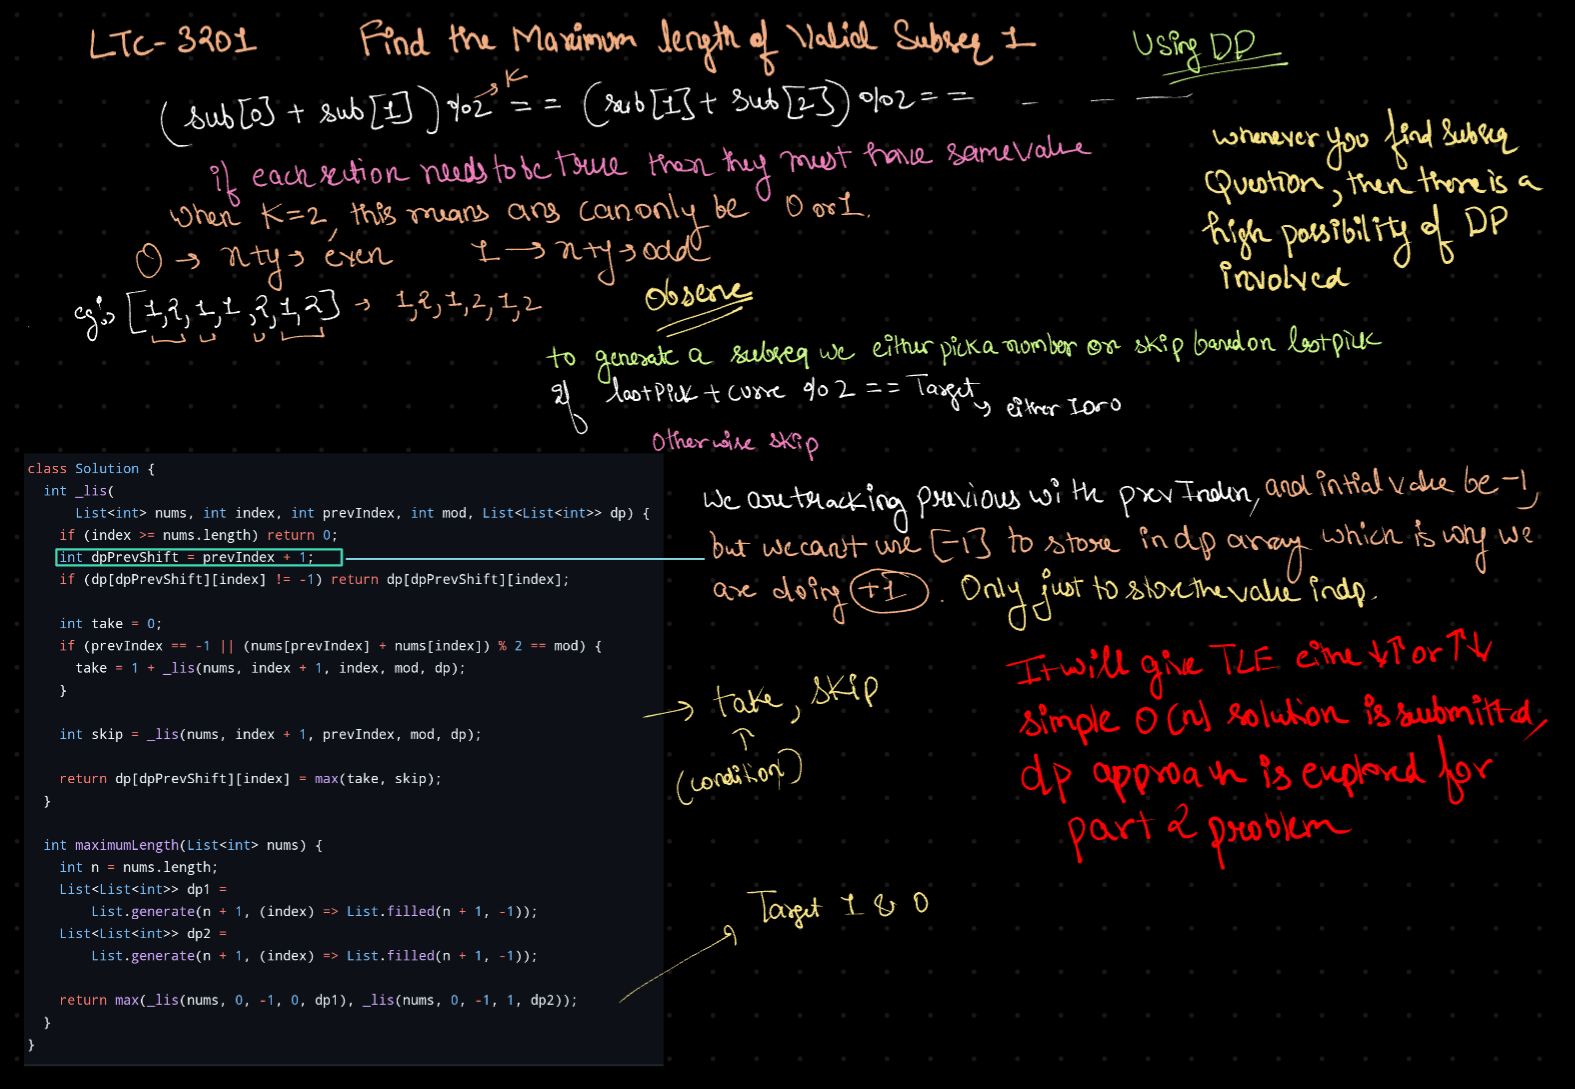 LTC-3201 Find the Maximum length of Valid Subseq 1
Using DP
(sub[0] + sub[1]) %2 == (sub[1] + sub[2]) %2 == _ _ _
→ K
if each section needs to be true then they must have same value
when K=2, this means ans can only be 0 or 1.
0 → x+y → even 1 → x+y → odd
eg:→ [1,2,1,1,2,1,2] → 1,2,1,2,1,2
whenever you find subseq
Question, then there is a
high possibility of DP
involved
Observe
to generate a subseq we either pick a number or skip based on last pick
if lastPick + curr % 2 == Target → either 1 or 0
Otherwise skip
class Solution {
int _lis(
List<int> nums, int index, int prevIndex, int mod, List<List<int>> dp) {
if (index >= nums.length) return 0;
int dpPrevShift = prevIndex + 1;
if (dp[dpPrevShift][index] != -1) return dp[dpPrevShift][index];
int take = 0;
if (prevIndex == -1 || (nums[prevIndex] + nums[index]) % 2 == mod) {
take = 1 + _lis(nums, index + 1, index, mod, dp);
}
int skip = _lis(nums, index + 1, prevIndex, mod, dp);
return dp[dpPrevShift][index] = max(take, skip);
}
int maximumLength(List<int> nums) {
int n = nums.length;
List<List<int>> dp1 =
List.generate(n + 1, (index) => List.filled(n + 1, -1));
List<List<int>> dp2 =
List.generate(n + 1, (index) => List.filled(n + 1, -1));
return max(_lis(nums, 0, -1, 0, dp1), _lis(nums, 0, -1, 1, dp2));
}
}
we are tracking previous with prevIndex, and intial value be -1,
but we can't use [-1] to store in dp array which is why we
are doing +1. Only just to store the value in dp.
→ take, skip
↑
(condition)
It will give TLE eithe ↓↑ or ↑↓
simple O(n) solution is submitted,
dp approach is explored for
part 2 problem
Target 1 & 0